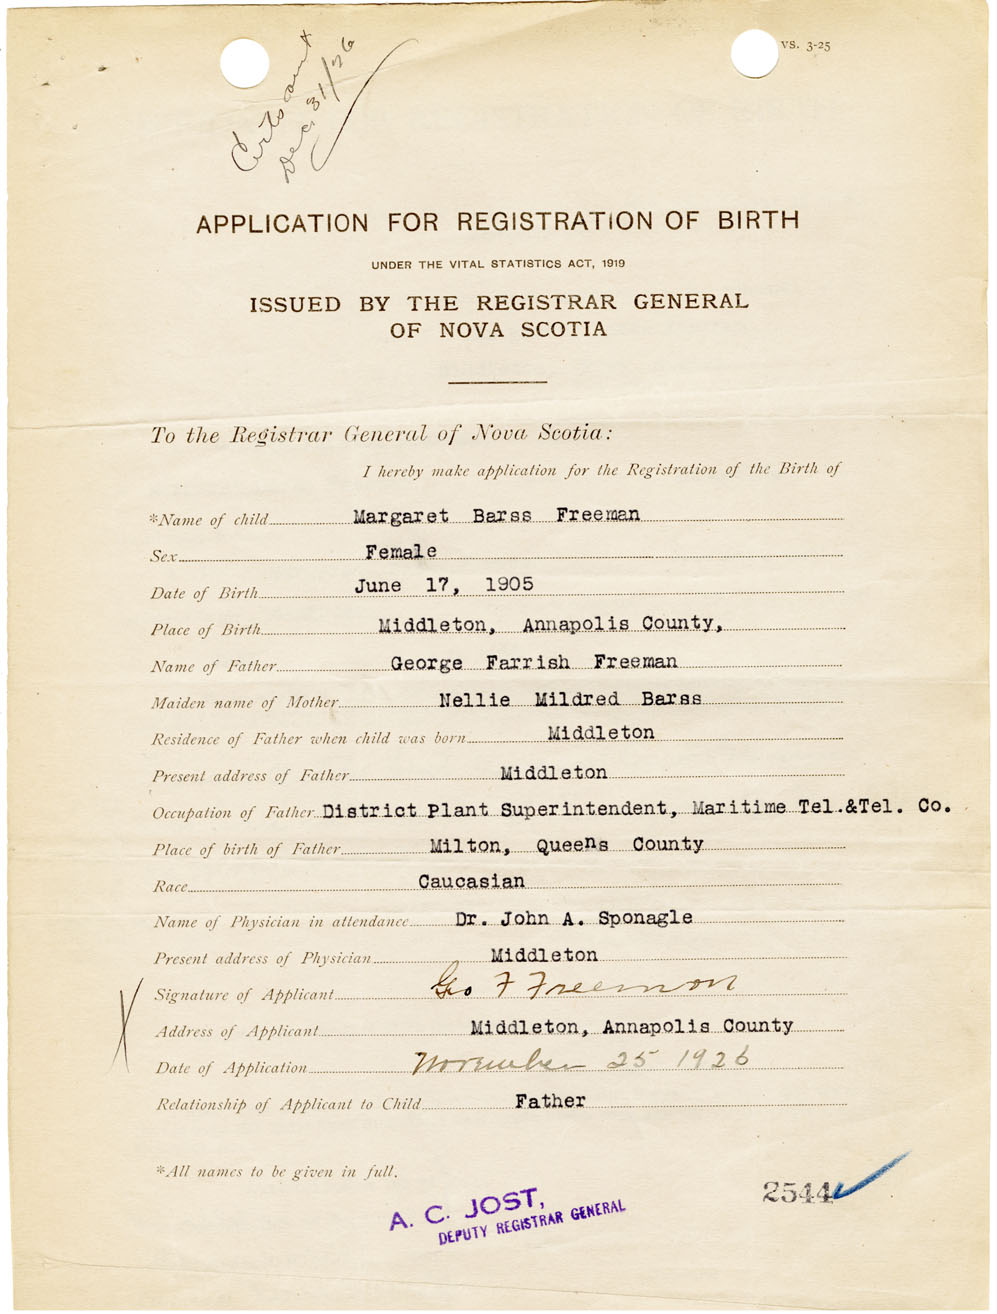 VS. 3-25
Certs
Dec. 31/26
APPLICATION FOR REGISTRATION OF BIRTH
UNDER THE VITAL STATISTICS ACT, 1919
ISSUED BY THE REGISTRAR GENERAL
OF NOVA SCOTIA
To the Registrar General of Nova Scotia:
I hereby make application for the Registration of the Birth of
*Name of child Margaret Barss Freeman
Sex Female
Date of Birth June 17, 1905
Place of Birth Middleton, Annapolis County,
Name of Father George Farrish Freeman
Maiden name of Mother Nellie Mildred Barss
Residence of Father when child was born Middleton
Present address of Father Middleton
Occupation of Father District Plant Superintendent, Maritime Tel.&Tel. Co.
Place of birth of Father Milton, Queens County
Race Caucasian
Name of Physician in attendance Dr. John A. Sponagle
Present address of Physician Middleton
Signature of Applicant Geo F Freeman
Address of Applicant Middleton, Annapolis County
Date of Application November 25 1926
Relationship of Applicant to Child Father
*All names to be given in full.
2544
A. C. JOST,
DEPUTY REGISTRAR GENERAL